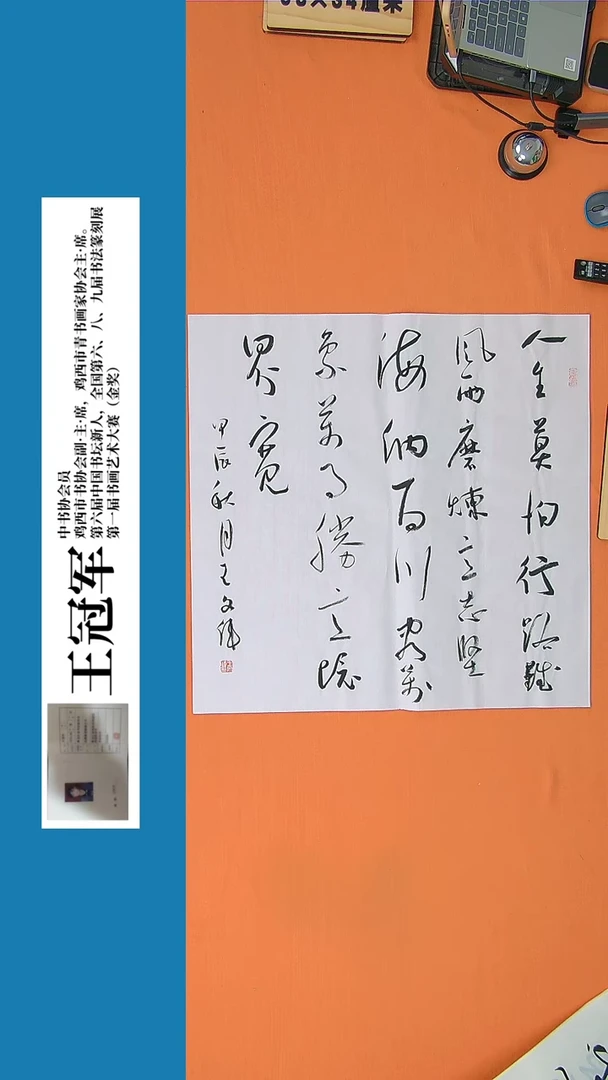 ×34厘米
中书协会员
鸡西市书协会副·主·席，鸡西市青书画家协会主·席。
第六届中国书坛新人，全国第六、八、九届书法篆刻展
第一届书画艺术大赛（金奖）
王冠军
人生莫怕行路難
風雨磨煉意志堅
海納百川容萬
象萬事勝意境
界寬
甲辰秋月王文